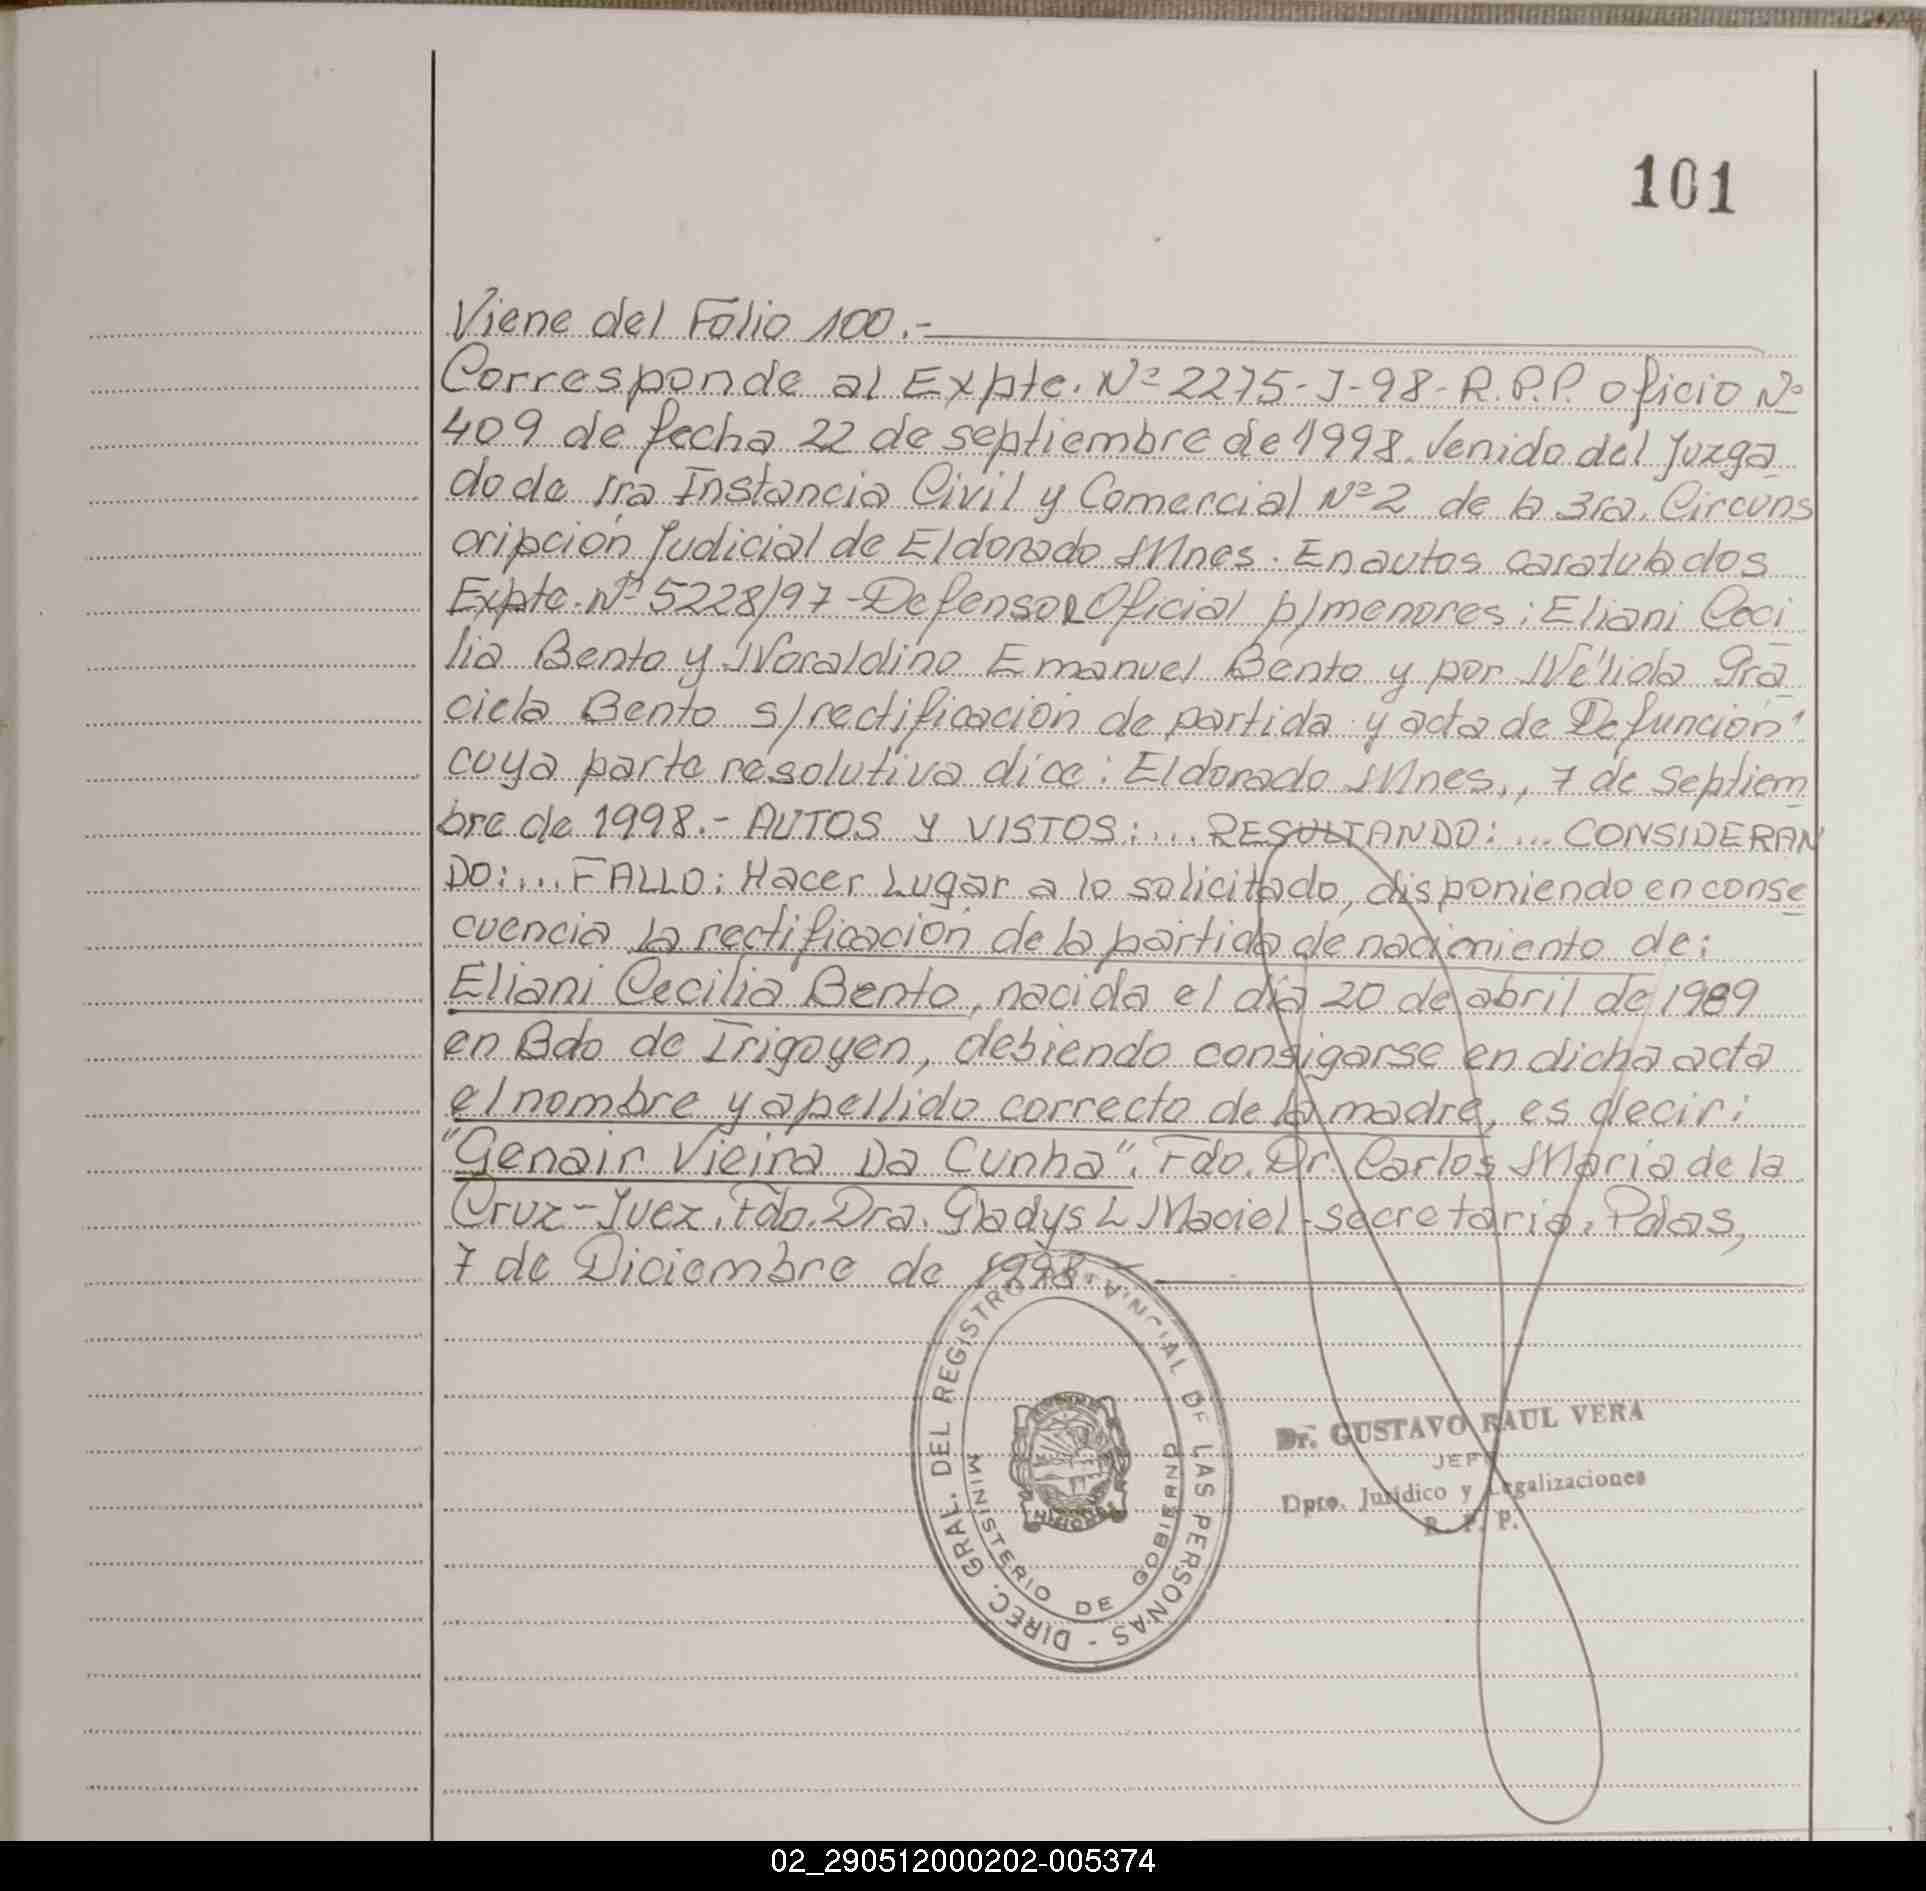 101
Viene del Folio 100.-
Corresponde al Expte. Nº 2275-J-98-R.P.P. oficio Nº
409 de fecha 22 de septiembre de 1998. Venido del Juzga
do de 1ra Instancia Civil y Comercial Nº 2 de la 3ra. Circuns
cripción Judicial de Eldorado Mnes. En autos caratulados
Expte. Nº 5228/97-Defensor Oficial p/menores: Eliani Ceci
lia Bento y Noraldino Emanuel Bento y por Nélida Gra
ciela Bento s/rectificación de partida y acta de Defunción"
cuya parte resolutiva dice: Eldorado Mnes., 7 de septiem
bre de 1998.- AUTOS Y VISTOS:... RESULTANDO:... CONSIDERAN
DO:... FALLO: Hacer Lugar a lo solicitado, disponiendo en conse
cuencia la rectificación de la partida de nacimiento de:
Eliani Cecilia Bento, nacida el día 20 de abril de 1989
en Bdo de Irigoyen, debiendo consigarse en dicha acta
el nombre y apellido correcto de la madre, es decir:
"Genair Vieira Da Cunha". Fdo. Dr. Carlos Maria de la
Cruz-Juez. Fdo. Dra. Gladys L Maciel-secretaria. Pdas,
7 de Diciembre de 1998.-
DIREC. GRAL. DEL REGISTRO PROVINCIAL DE LAS PERSONAS -
MINISTERIO DE GOBIERNO
MISIONES
Dr. GUSTAVO RAUL VERA
JEFE
Dpto. Jurídico y Legalizaciones
R. P. P.
02_290512000202-005374